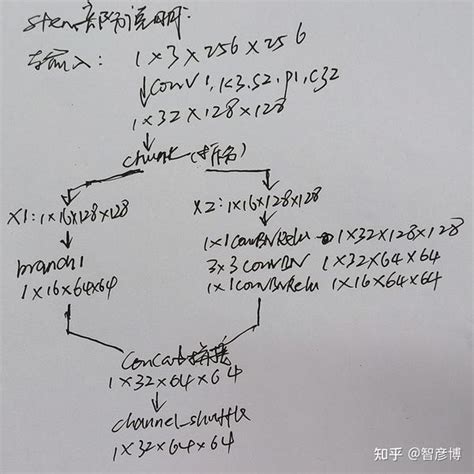 stem部分说明:
输入: 1×3×256×256
conv1, k3, s2, p1, c32
1×32×128×128
chunk(拆分)
x1: 1×16×128×128
x2: 1×16×128×128
1×1convBNRelu → 1×32×128×128
branch1
3×3convBN 1×32×64×64
1×16×64×64
1×1convBNRelu 1×16×64×64
concat 拼接
1×32×64×64
channel_shuffle
1×32×64×64
知乎 @智彦博